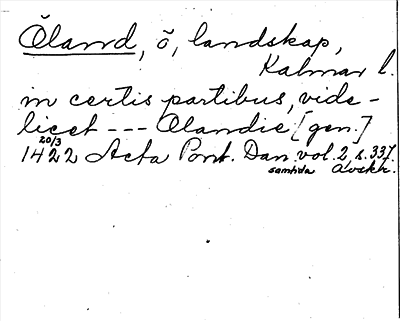 Öland, ö, landskap,
Kalmar l.
in certis partibus, vide-
licet --- Olandie [gen.]
20/3
1422 Acta Pont. Dan. vol. 2, s. 337.
samtida avskr.